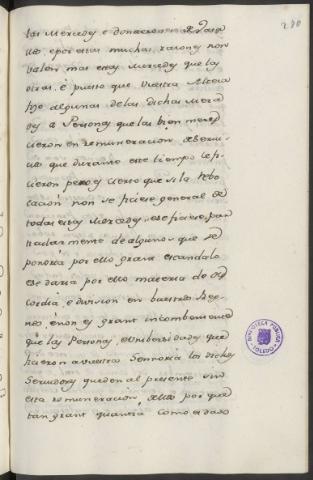 280
las Mercedes e donaciones
e por estas muchas razones non
valen mas estas Mercedes que las
otras, é puesto que Vuestra Alteza
hizo algunas de las dichas Merce
des a Personas que las bien mere
cieron en remuneracion de servi
cios que durante este tiempo le fi
cieron pero es cierto que si la rebo
cacion non se ficiese general de
todas estas Mercedes, e se ficiese par
ticularmente de algunos que se
pondria por ello grave escandalo
e se daria por ello materia de dis
cordia é division en vuestros Rey
nos é non es grant incombeniente
que las Personas, é Universidades que
ficieron a vuestra Señoria los dichos
Servicios queden al presente sin
esta remuneracion, por que
tan grant quantia como es dado
BIBLIOTECA PUBLICA
TOLEDO